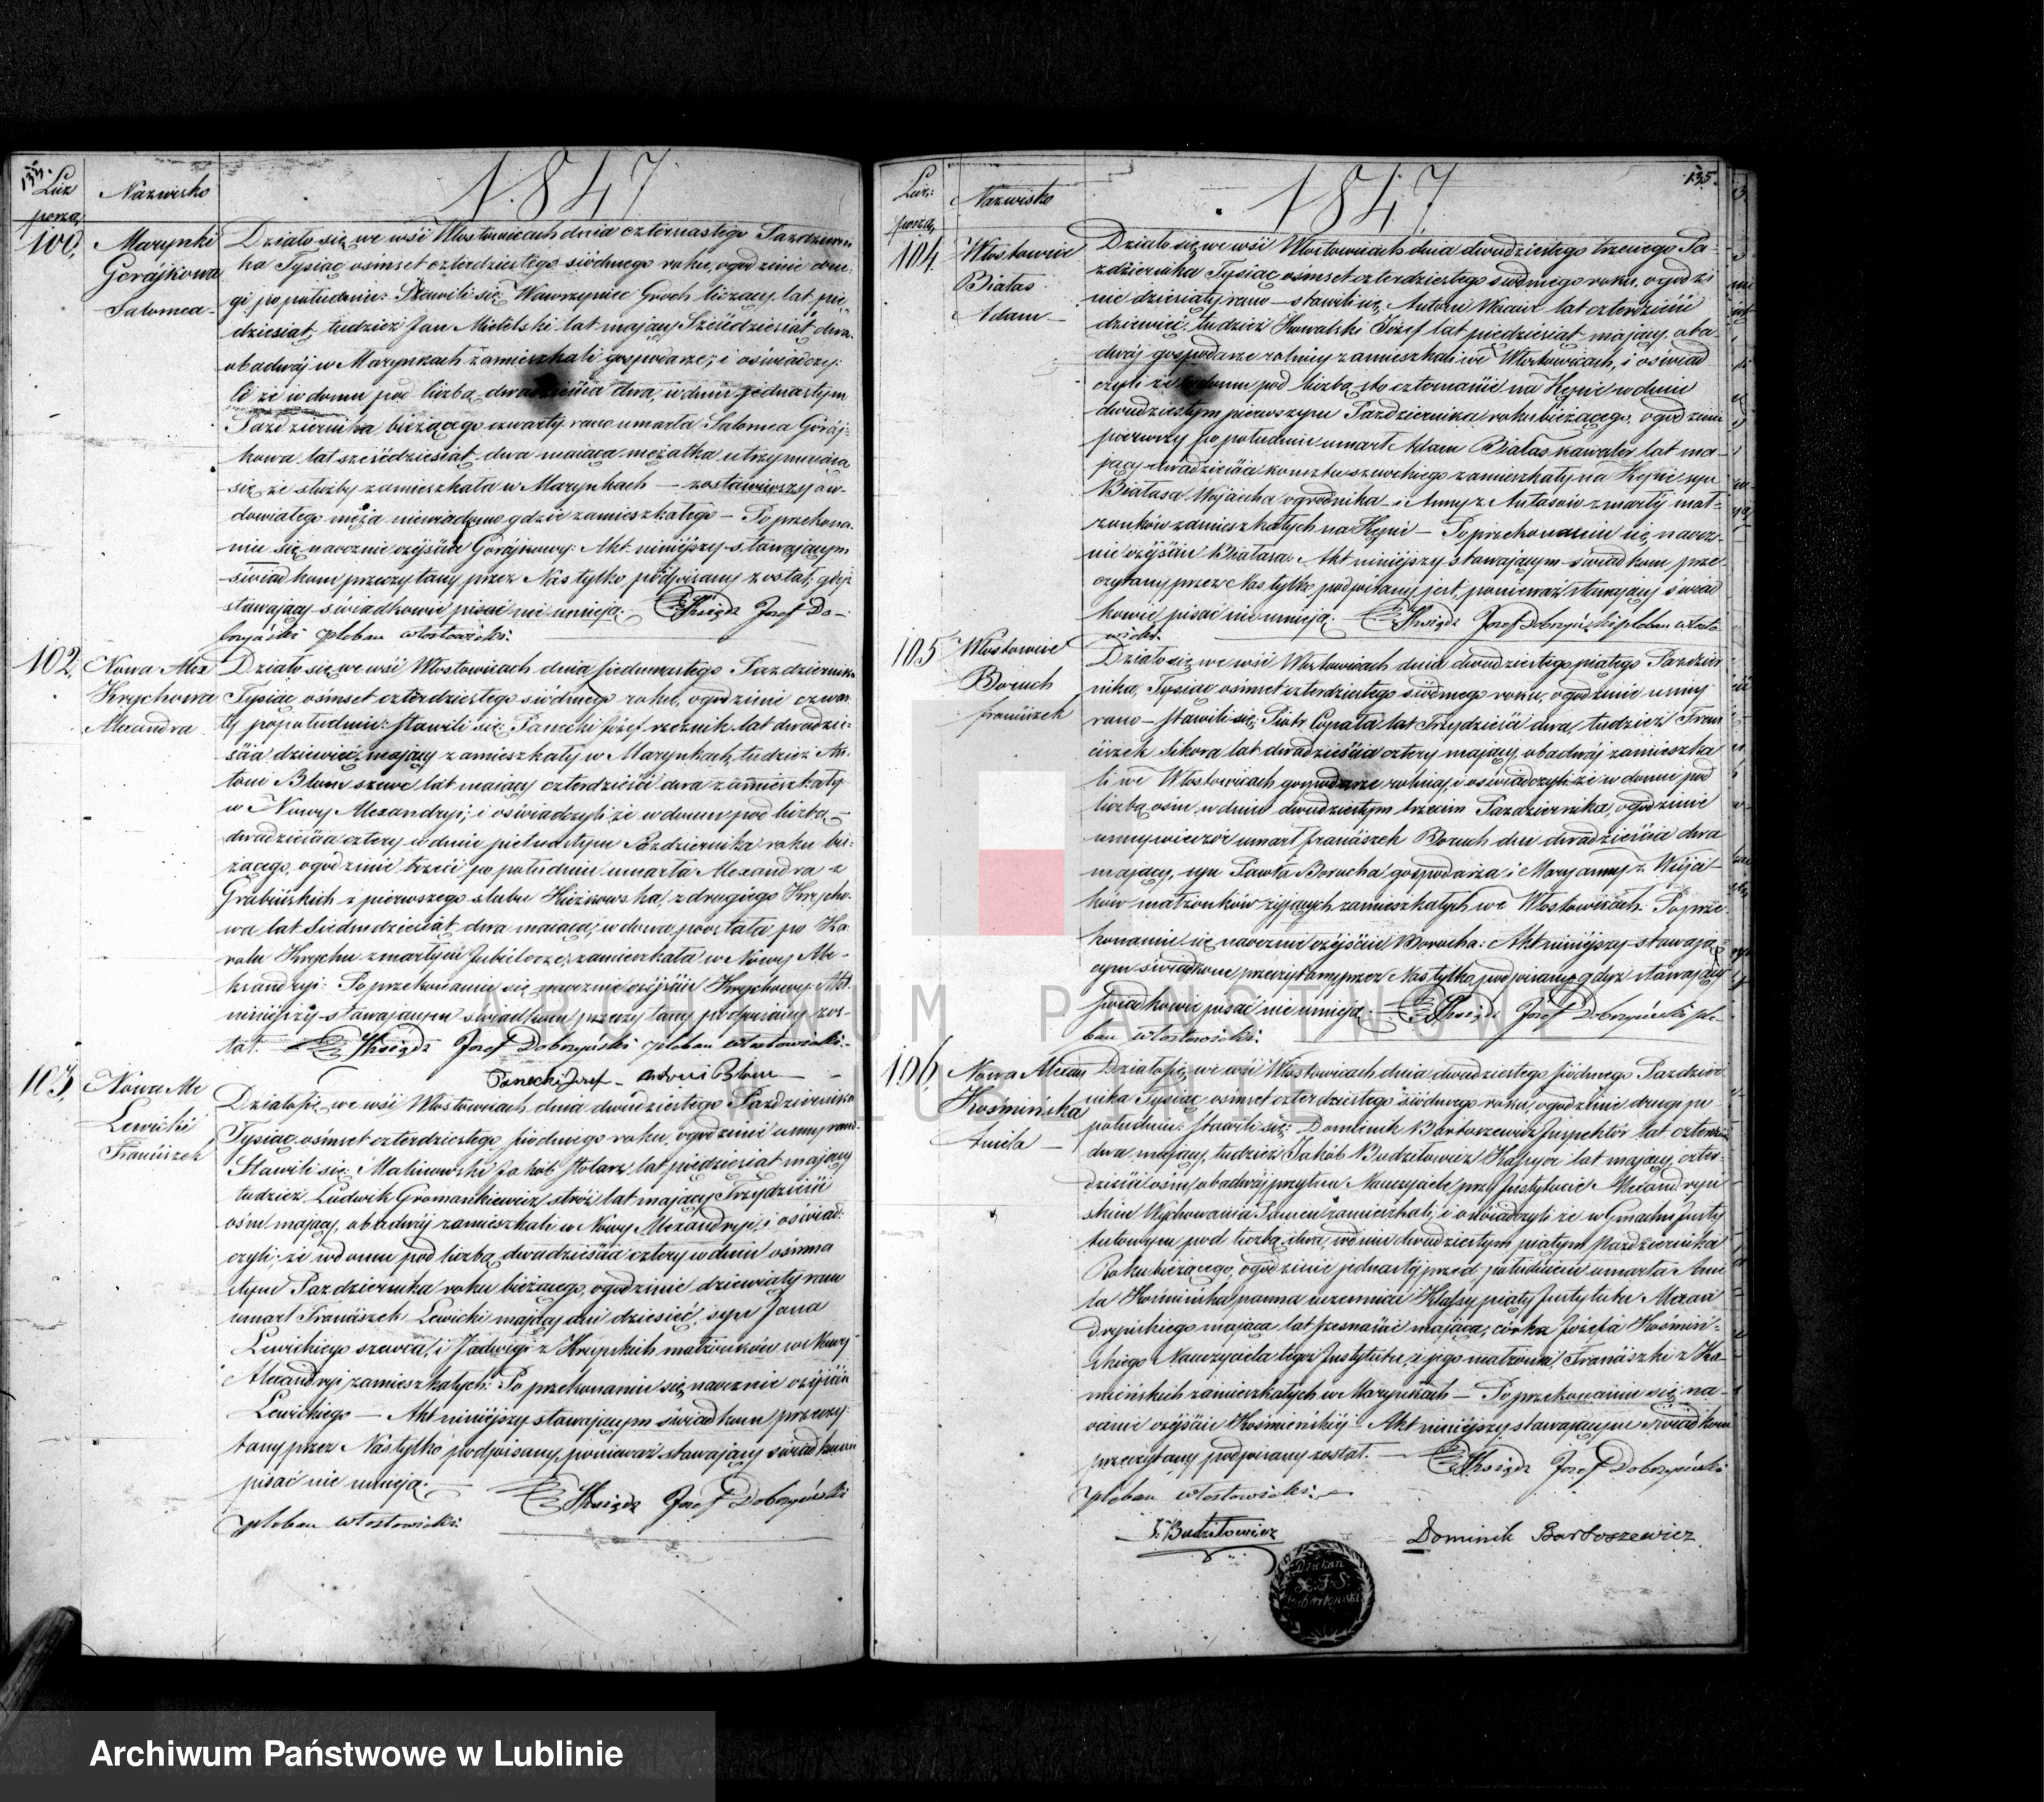 134.
Licz
porzą.
Nazwisko
1847
100.
Marynki
Gorájkowa
Salomea
Działo się we wsi Włostowicach dnia czternastego Październi
ka Tysiąc ośmset czterdziestego siódmego roku, o godzinie dru-
gi po południu: Stawili się Wawrzyniec Groch liczący lat pię-
dziesiąt, tudzież Jan Mictelski lat mający Sześćdziesiąt dwa
obadwaj w Marynkach zamieszkali gospodarze, i oświadczy-
li że w domu pod liczbą dwadzieścia dwa, w dniu jednastym
Października bieżącego czwarty rano umarła Salomea Goráj-
kowa lat sześćdziesiąt dwa mająca mężatka utrzymująca
się ze służby zamieszkała w Marynkach — zostawiwszy ow-
dowiałego męża niewiadomo gdzie zamieszkałego — Po przekona-
niu się naocznie o zejściu Gorájkowy: Akt niniejszy stawającym
świadkom przeczytany przez Nas tylko podpisany został, gdyż
stawający świadkowie pisać nie umieją. Ksiądz Jozef Do-
brzyński pleban włostowicki.
102.
Nowa Alex
Krychowa
Alexandra
Działo się we wsi Włostowicach dnia siedmnastego Października
Tysiąc ośmset czterdziestego siódmego roku, o godzinie czwar-
ty po południu: stawili się: Panecki Józef rzeźnik lat dwadzie-
ścia dziewięć mający zamieszkały w Marynkach, tudzież An-
toni Blum szewc lat mający czterdzieści dwa zamieszkały
w Nowy Alexandryi; i oświadczyli, że w domu pod liczbą
dwadzieścia cztery w dniu piętnastym Października roku bie-
żącego, o godzinie trzeci po południu umarła Alexandra z
Grabińskich z pierwszego ślubu Kiżkowska, z drugiego Krycho-
wa lat siedmdziesiąt dwa mająca, wdowa pozostała po Ka-
rolu Krychu zmarłym Jubilerze, zamieszkała we Nowy Ale-
xandryi: Po przekonaniu się naocznie o zejściu Krychowy: Akt
niniejszy stawającym świadkom przeczytany podpisany zos-
tał. Ksiądz Jozef Dobrzyński pleban włostowicki.
Panecki Jozef — Antoni Blum
103.
Nowa Ale
Lewicki
Franciszek
Działo się we wsi Włostowicach dnia dwudziestego Października
Tysiąc ośmset czterdziestego siódmego roku, o godzinie ósmy rano
Stawili się: Malinowski Jakób stolarz lat piędziesiąt mający
tudzież Ludwik Gromankiewicz stróż lat mający Trzydzieści
ośm mający, obadwaj zamieszkali w Nowy Alexandryi, i oświad-
czyli; że w domu pod liczbą dwadzieścia cztery w dniu ośmna
stym Października roku bieżącego, o godzinie dziewiąty rano
umarł Franciszek Lewicki mający dni dziesięć, syn Jana
Lewickiego szewca, i Jadwigi z Krupskich małżonków we Nowy
Alexandryi zamieszkałych: Po przekonaniu się naocznie o zejściu
Lewickiego — Akt niniejszy stawającym świadkom przeczy-
tany przez Nas tylko podpisany, ponieważ stawający świadkowie
pisać nie umieją. Ksiądz Jozef Dobrzyński
pleban włostowicki.
135.
Licz:
porzą.
Nazwisko
1847
104.
Włostowice
Białas
Adam
Działo się we wsi Włostowicach dnia dwudziestego trzeciego Pa-
ździernika Tysiąc ośmset czterdziestego siódmego roku, o godzi
nie dziesiąty rano — stawili się, Antoni Wiącek lat czterdzieści
dziewięć, tudzież Kowalski Józef lat piędziesiąt mający, oba-
dwaj gospodarze rolnicy zamieszkali we Włostowicach, i oświad
czyli że w domu pod liczbą sto czternaście na Kępie w dniu
dwudziestym pierwszym Października roku bieżącego, o godzinie
pierwszy po południu umarł Adam Białas kawaler lat ma-
jący dwadzieścia kunsztu szewckiego zamieszkały na Kępie syn
Białasa Wojciecha ogrodnika i Anny z Antasów zmarły mał-
żonków zamieszkałych na Kępie — Po przekonaniu się naocz-
nie o zejściu Białasa: Akt niniejszy stawającym świadkom prze-
czytany przez Nas tylko podpisany jest, ponieważ stawający świad
kowie pisać nie umieją. Ksiądz Jozef Dobrzyński pleban włosto-
wicki.
105
Włostowice
Boruch
Franciszek
Działo się we wsi Włostowicach dnia dwudziestego piątego Paździer
nika, Tysiąc ośmset czterdziestego siódmego roku, o godzinie ósmy
rano — stawili się; Piotr Copała lat Trzydzieści dwa, tudzież Fran
ciszek Sikora lat dwadzieścia cztery mający, obadwaj zamieszka
li we Włostowicach gospodarze rolnicy, i oświadczyli że w domu pod
liczbą ośm, w dniu dwudziestym trzecim Października, o godzinie
ósmy wieczór umarł Franciszek Boruch dni dwadzieścia dwa
mający, syn Pawła Borucha gospodarza i Maryanny z Wójci-
ków małżonków żyjących zamieszkałych we Włostowicach: Po prze-
konaniu się naocznie o zejściu Borucha: Akt niniejszy stawają-
cym świadkom przeczytany przez Nas tylko podpisany, gdyż stawający
świadkowie pisać nie umieją. Ksiądz Jozef Dobrzyński ple-
ban włostowicki.
106.
Nowa Alexan
Kośmińska
Aniela
Działo się we wsi Włostowicach dnia dwudziestego siódmego Paździer
nika Tysiąc ośmset czterdziestego siódmego roku, o godzinie drugi po
południu: stawili się: Dominik Bartoszewicz Inspektór lat czterdzieści
dwa mający, tudzież Jakób Budziłowicz Kassyer lat mający czter-
dzieści ośm, obadwaj przytem Nauczyciele przy Instytucie Alexandryń
skim Wychowania Panien zamieszkali, i oświadczyli że w Gmachu Insty
tutowym pod liczbą dwa, w dniu dwudziestym piątym Października
Roku bieżącego, o godzinie jednasty przed południem umarła Anie
la Kośmińska panna uczennica Klassy piąty Instytutu Alexan
dryńskiego mająca lat szesnaście mająca, córka Józefa Kośmiń-
skiego Nauczyciela tegoż Instytutu, i jego małżonki Franciszki z Ka-
mieńskich zamieszkałych w Marynkach — Po przekonaniu się na-
ocznie o zejściu Kośmińskiéj: Akt niniejszy stawającym świadkom
przeczytany podpisany został. — Ksiądz Jozef Dobrzyński
pleban włostowicki.
J. Budziłowicz Dominik Bartoszewicz.
Dziekan
Lubartowski
ARCHIWUM PAŃSTWOWE
W LUBLINIE
Archiwum Państwowe w Lublinie